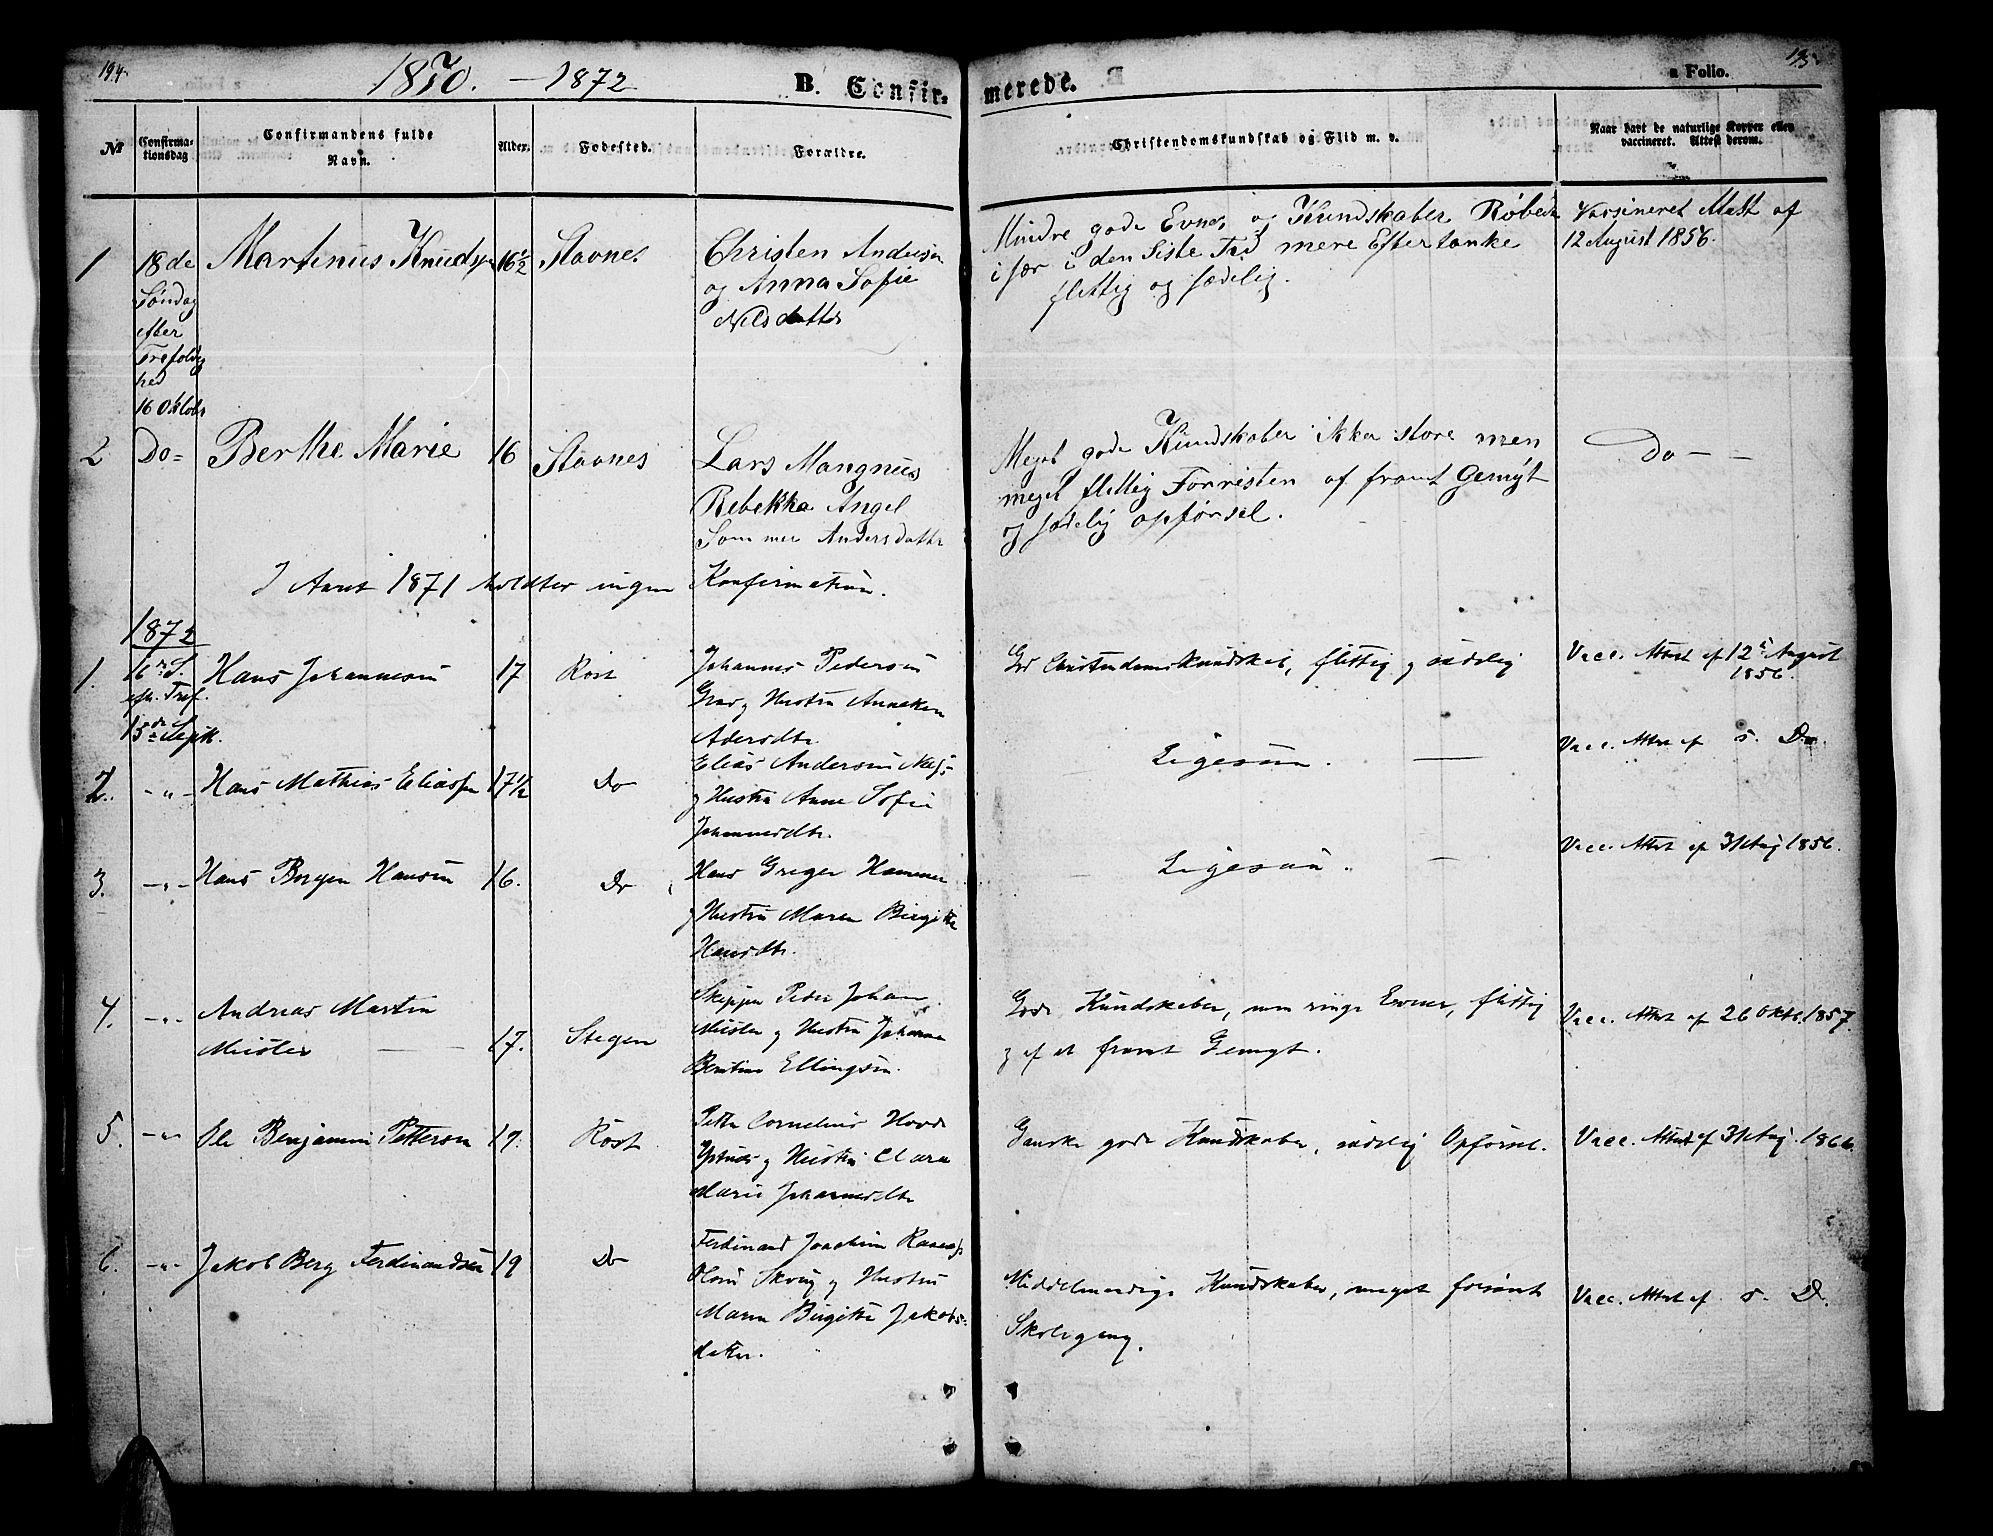 194
1870. – 1872
B. Confir-
merede.
195
a Folio.
№
Confirma-
tionsdag
Confirmandens fulde
Navn.
Alder.
Fødested.
Forældre.
Christendomskundskab og Flid m. v.
Naar havt de naturlige Kopper eller
vaccineret. Attest derom.
1
18de
Søndag
efter
Trefoldig
hed
16 Oktobr
Martinus Knudsen
16½
Stavnes
Christen Andersen
og Anna Sofie
Nilsdatter
Mindre gode Evner og Kundskaber
især i den Siste Tid mere Eftertanke
flittig og sædelig.
Vacsineret Attest af
12 August 1856.
2
Do=
Berthe Marie
16
Stavnes
Lars Mangnus
Rebekka Angel
Sommer Andersdatter
Meget gode Kundskaber ikke store men
meget flittig af fromt Gemyt
og sædelig opførsel.
Do – –
I Aaret 1871 holdtes ingen Konfirmation.
1872
1.
16de S.
eft. Tref.
15de Sept.
Hans Johannesen
17
Røst
Johannes Pedersen
og Hustru Anneken
Adersdtr
God Christendomskundskab, flittig og sædelig
Vacc. Attest af 12te August
1856.
2.
– " –
Hans Mathias Eliassen
17½
Do
Elias Andersen
og Hustru Anne Sofie
Johannesdtr.
Ligesaa. —
Vacc. Attest af s. D.
3.
– " –
Hans Borgen Hansen
16.
Do
Hans Greger Hammer
og Hustru Maren Birgitte
Hansdtr.
Ligesaa. —
Vacc. Attest af 31 Aug 1856.
4.
– " –
Andreas Martin
Meisler —
17.
Stegen
Skipper Peder Johan
Meisler og Hustru Johanna
Bentine Ellingsen.
Gode Kundskaber, men ringe Evner, flittig
og af et fromt Gemyt.
Vacc. Attest af 26 Oktr. 1857.
5.
– " –
Ole Benjamin Pettersen
19.
Røst
Petter Cornelius
og Hustru Clara
Marie Johannesdtr
Ganske gode Kundskaber, sædelig Opførsel.
Vacc. Attest af 31 Aug. 1866.
6.
– " –
Jakob Berg Ferdinandsen
19
Do
Ferdinand Joachim
og Hustru
Maren Birgitte Jakobs-
datter.
Middelmaadige Kundskaber, meget forsømt
Skolegang.
Vacc. Attest af s. D.